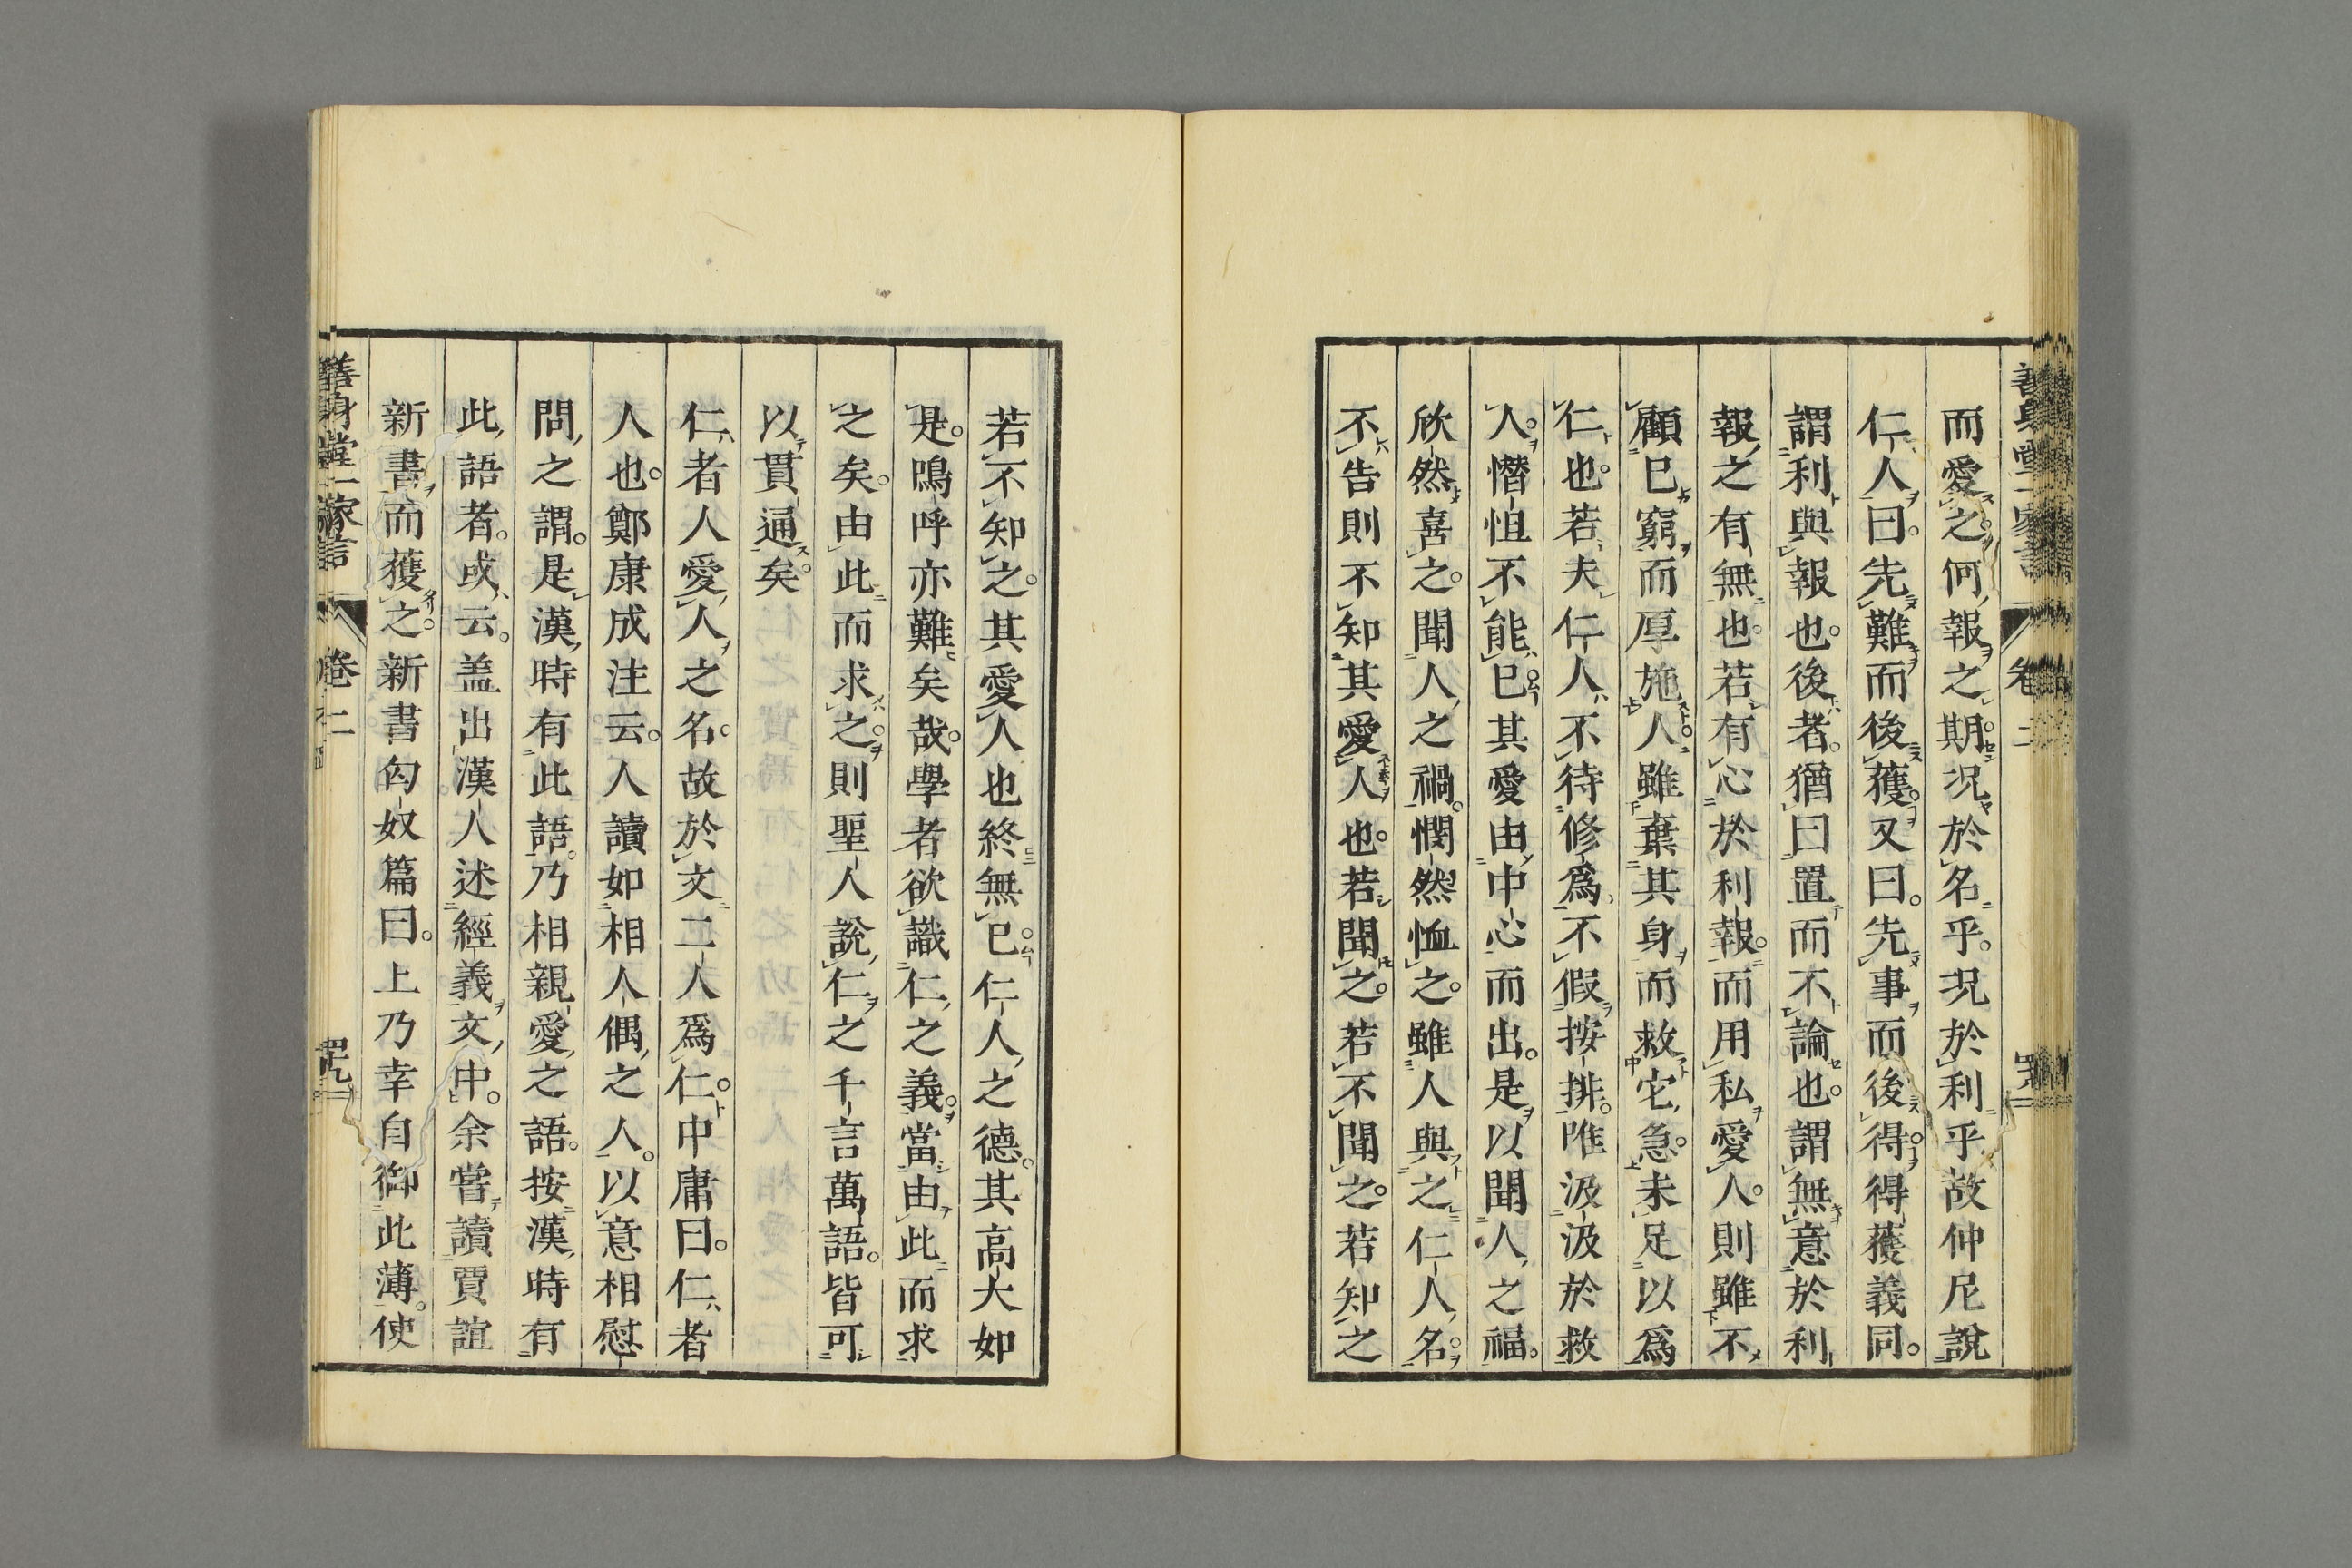 而愛之何報之期況於名乎。況於利乎故仲尼說
仁人曰。先難而後獲。又曰。先事而後得。得獲義同。
謂利與報也。後者。猶曰置而不論也。謂無意於利
報之有無也。若有心於利報。而用私愛人。則雖不
顧已窮而厚施人。雖棄其身而救它急。未足以爲
仁也。若夫仁人不待修爲不假按排。唯汲汲於救
人。憯怛不能已。其愛由中心而出。是以聞人之福。
欣然喜之。聞人之禍。憫然恤之。雖人與之仁人名。
不告則不知其愛人也。若聞之。若不聞之。若知之
若不知之。其愛人也終無已。仁人之德。其高大如
是。嗚呼亦難矣哉。學者欲識仁之義。當由此而求
之矣。由此而求之。則聖人說仁之千言萬語。皆可
以貫通矣。
仁者人愛人之名。故於文二人爲仁。中庸曰。仁者
人也。鄭康成注云。人讀如相人偶之人。以意相慰
問之謂。是漢時有此語。乃相親愛之語。按漢時有
此語者。或云。盖出漢人述經義文中。余嘗讀賈誼
新書而獲之。新書匈奴篇曰。上乃幸自御此薄。使
善身堂一家言 卷二